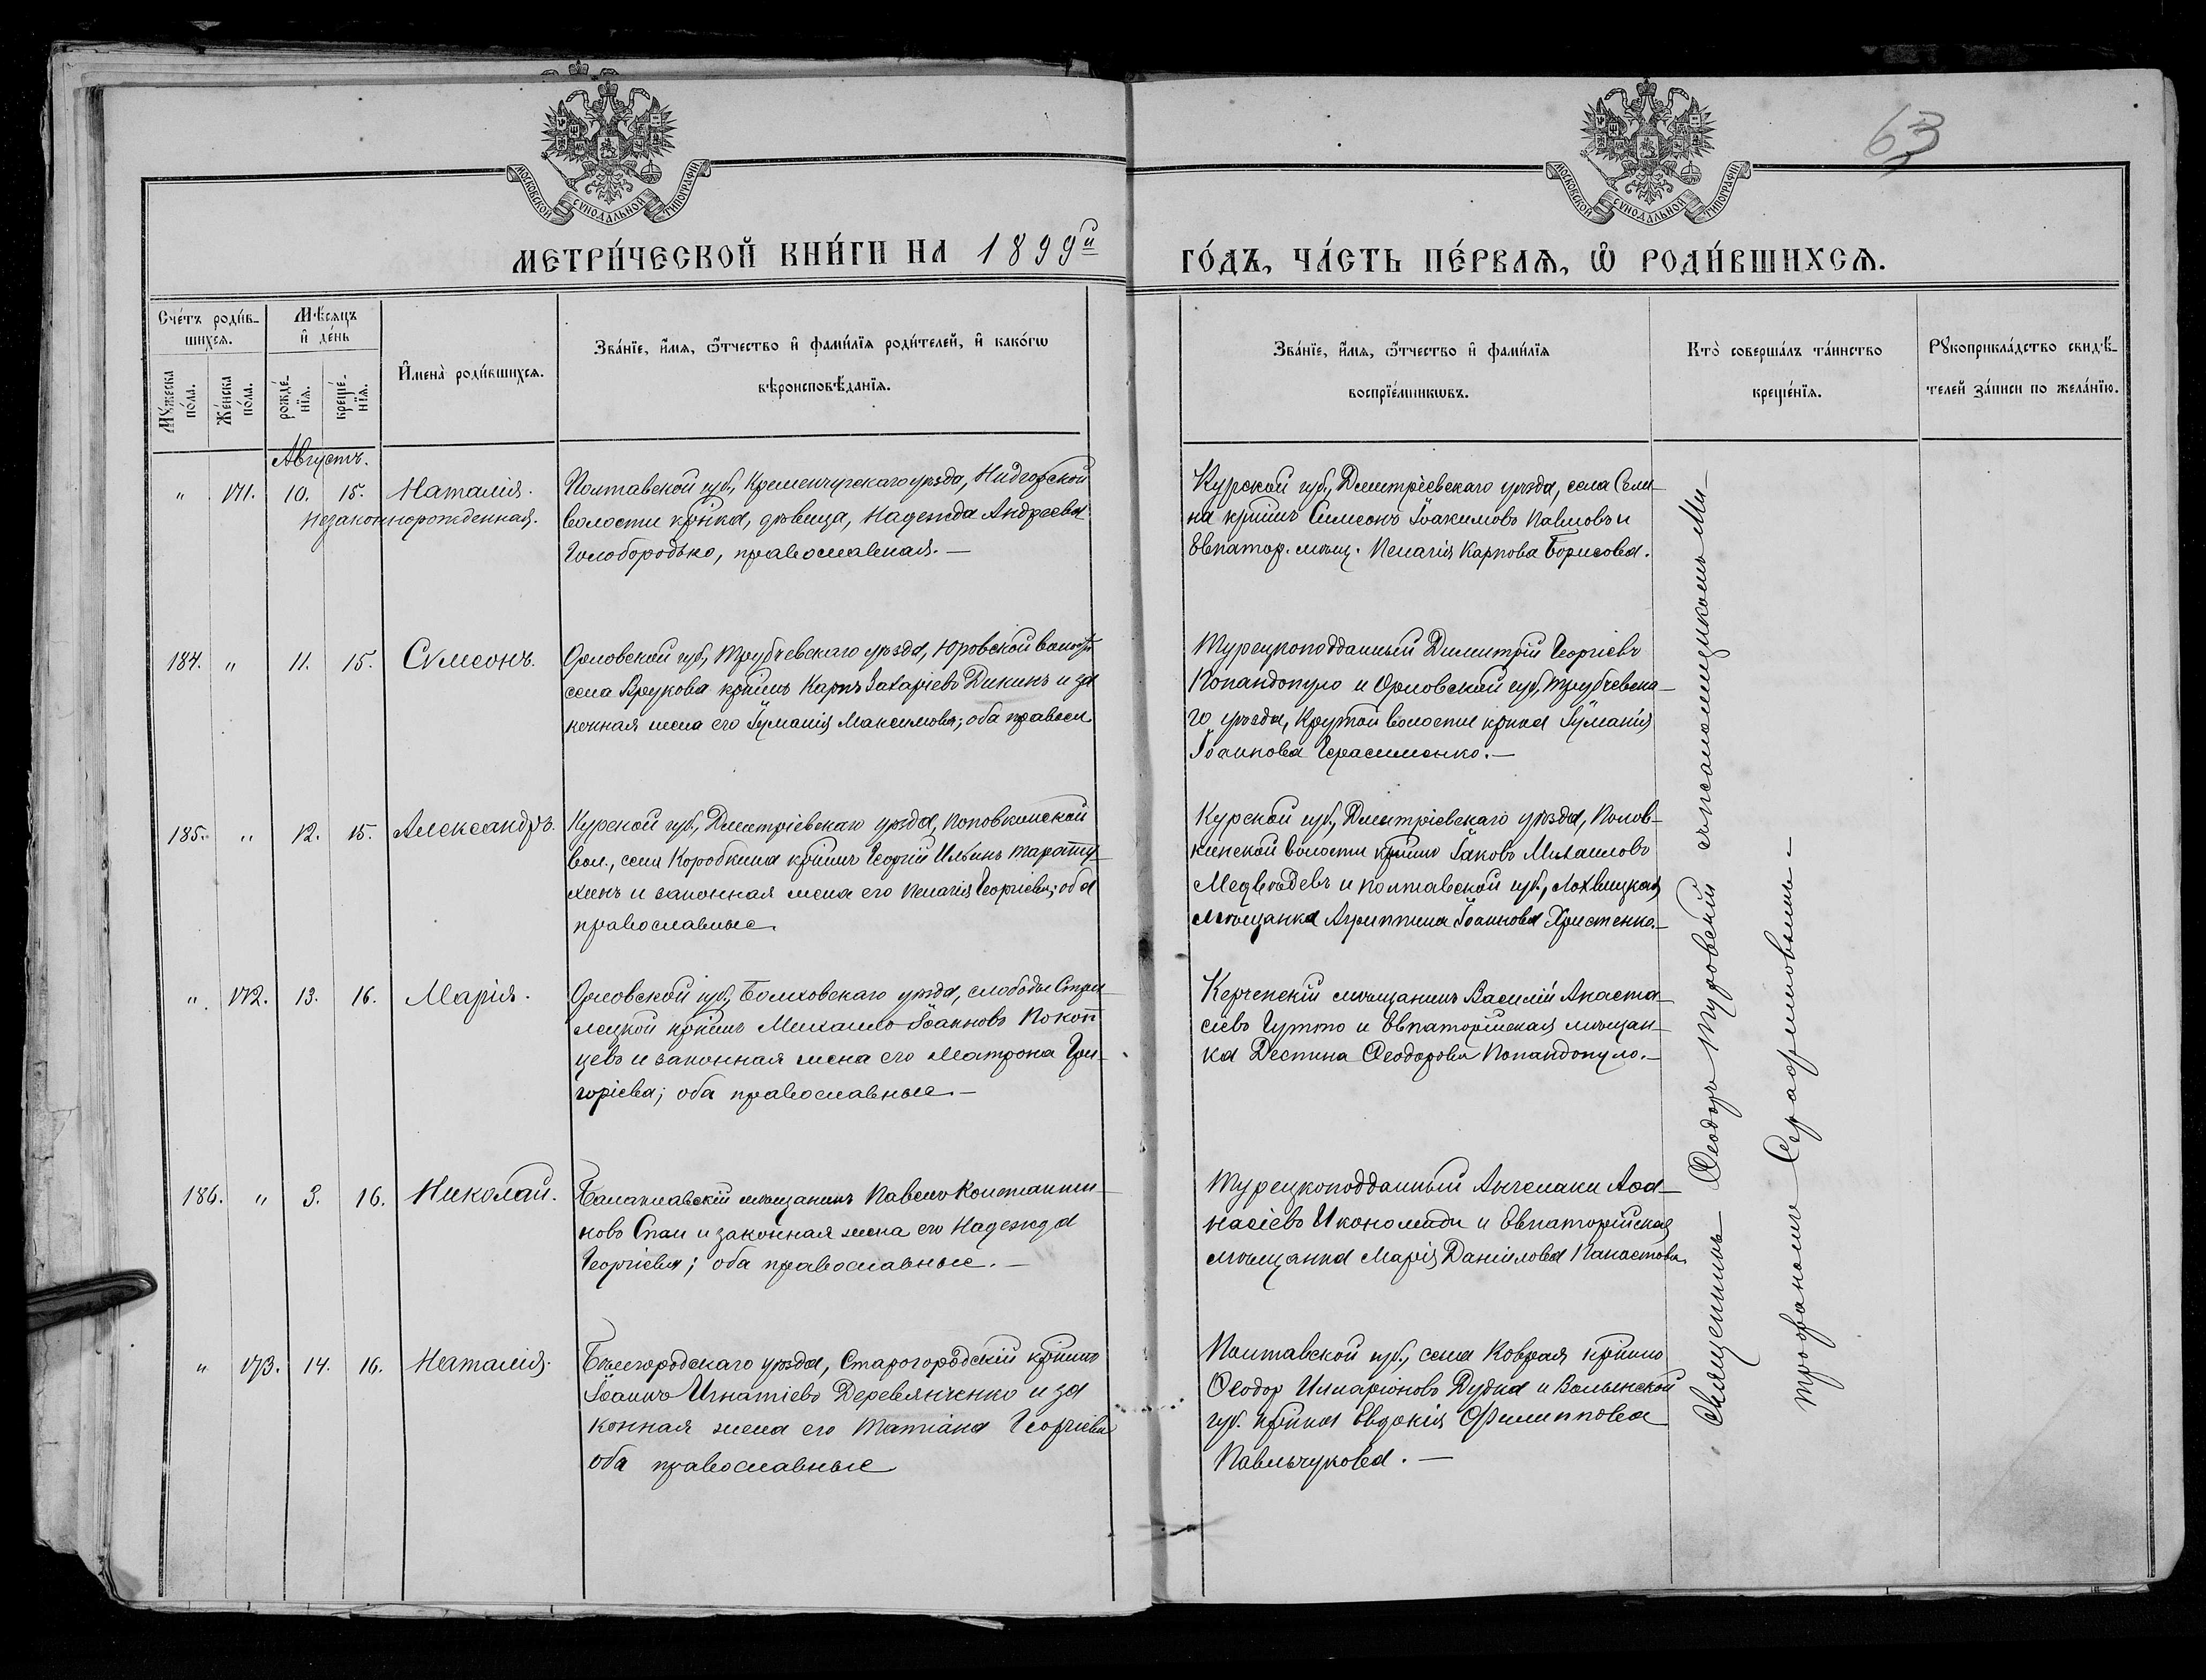 МОСКОВСКОЙ СѴНОДАЛЬНОЙ ТИПОГРАФІИ
МОСКОВСКОЙ СѴНОДАЛЬНОЙ ТИПОГРАФІИ
63
МЕТРИ́ЧЕСКОЙ КНИ́ГИ НА 1899й
ГО́ДЪ, ЧА́СТЬ ПЕ́РВАѦ, Ѡ҆ РОДИ́ВШИХСѦ.
Сче́тъ роди́в-
шихсѧ.
Мꙋ́жеска по́ла.
Же́нска по́ла.
Мѣ́сѧцъ
и҆ де́нь
рожде́-
нїѧ.
креще́-
нїѧ.
И҆мена̀ роди́вшихсѧ.
Зва́нїе, и҆́мѧ, ѻ҆́тчество и҆ фами́лїѧ роди́телей, и҆ како́гѡ
вѣроисповѣ́данїѧ.
Зва́нїе, и҆́мѧ, ѻ҆́тчество и҆ фами́лїѧ
воспрїе́мникѡвъ.
Кто̀ соверша́лъ та́инство
креще́нїѧ.
Рꙋкоприкла́дство свидѣ́-
телей за́писи по жела́нїю.
Августъ.
" 171. 10. 15. Наталія.
Незаконнорожденная.
Полтавской губ., Кременчугскаго уѣзда,
волости кр̃нка, дѣвица, Надежда Андреева
Голобородько, православная. —
Курской губ., Дмитріевскаго уѣзда, села Сели-
на кр̃нинъ Симеонъ Іоакимовъ Павловъ и
Евпатор. мѣщ. Пелагія Карпова Борисова.
184. " 11. 15. Сѵмеонъ.
Орловской губ., Трубчевскаго уѣзда, Юровской волости
села кр̃нинъ Карпъ Захаріевъ Дикинъ и за
конная жена его Іуліанія Максимова; оба правосл.
Турецкоподданный Димитрій Георгіевъ
Попандопуло и Орловской губ., Трубчевска-
го уѣзда, Крутой волости кр̃нка Іуліанія
Іоаннова Герасименко. —
185. " 12. 15. Александръ.
Курской губ., Дмитріевскаго уѣзда, Поповкинской
вол., села Коробкина кр̃нинъ Георгій Ильинъ Тарату-
хинъ и законная жена его Пелагія Георгіева; оба
православные.
Курской губ., Дмитріевскаго уѣзда, Попов-
кинской волости кр̃нинъ Іаковъ Михаиловъ
Медвѣдевъ и Полтавской губ., Лохвицкая
мѣщанка Агриппина Іоаннова Христенко. —
" 172. 13. 16. Марія.
Орловской губ., Болховскаго уѣзда, слободы Стрѣ-
лецкой кр̃нинъ Михаилъ Іоанновъ
цевъ и законная жена его Матрона Гри-
горіева; оба православные. —
Керченскій мѣщанинъ Василій Анаста-
сіевъ и Евпаторійская мѣщан-
ка Деспина Ѳеодорова Попандопуло. —
186. " 3. 16. Николай.
Балаклавскій мѣщанинъ Павелъ Константи-
новъ Спаи и законная жена его Надежда
Георгіева; оба православные. —
Турецкоподданный Ангелаки Аѳа-
насіевъ Икономиди и Евпаторійская
мѣщанка Марія Даніилова
" 173. 14. 16. Наталія.
Белгородскаго уѣзда, Старогородскій кр̃нинъ
Іоаннъ Игнатіевъ Деревянченко и за
конная жена его Татіана Георгіева
оба православные
Полтавской губ., села Коврая кр̃нинъ
Ѳеодор Иларіоновъ Дудка и Волынской
губ. кр̃нка Евдокія Филиппова
Павльчукова. —
Священникъ Ѳеодоръ Туровскій съ псаломщикомъ Ми-
трофаномъ Серафимовымъ —